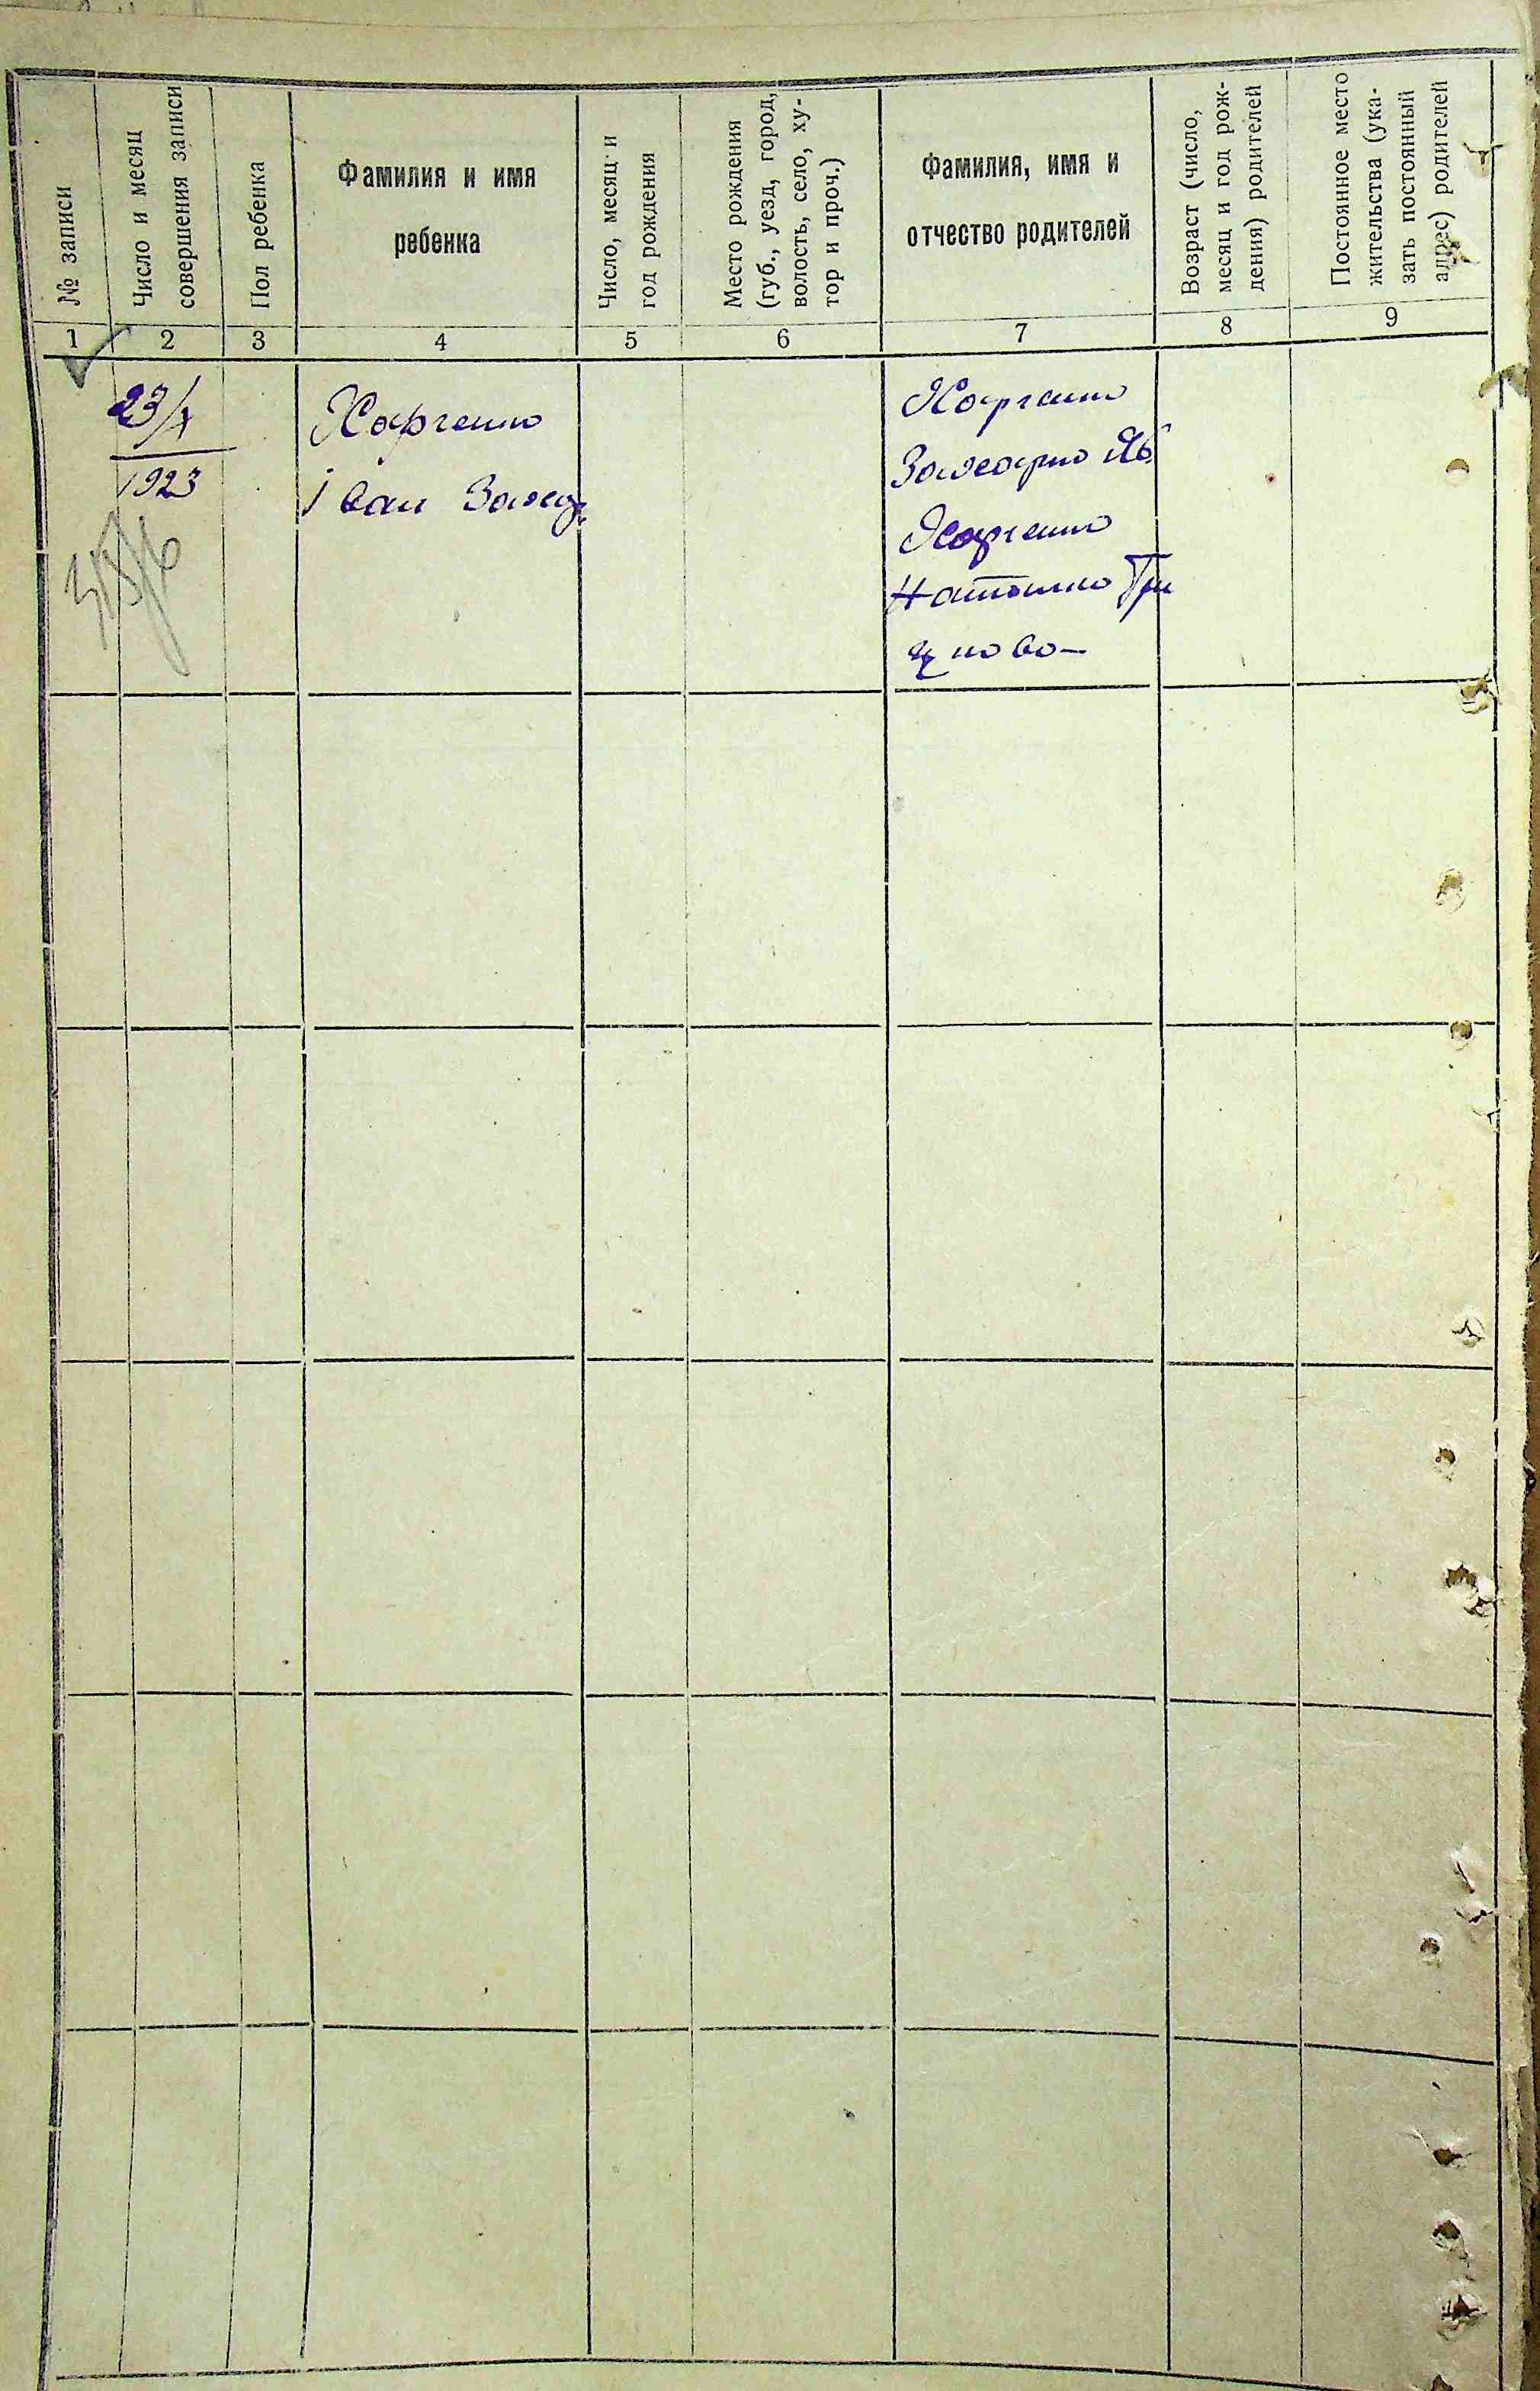 № записи
Число и месяц
совершения записи
Пол ребенка
Фамилия и имя
ребенка
Число, месяц и
год рождения
Место рождения
(губ., уезд, город,
волость, село, ху-
тор и проч.)
Фамилия, имя и
отчество родителей
Возраст (число,
месяц и год рож-
дения) родителей
Постоянное место
жительства (ука-
зать постоянный
адрес) родителей
1 2 3 4 5 6 7 8 9
23/X
1923
Харченко
Іван Захар.
Харченко
Захарко Як
Харченко